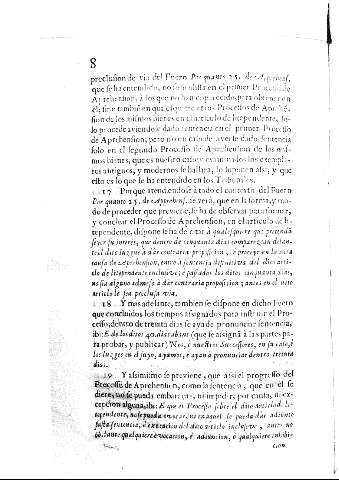 8
preclusion de via del Fuero Por quanto 25. de Apprehens.
que se ha entendido, no se obsta en el primer Processo de
Aprehension, à los que no han comparecido, para obtener en
èl; sino tambien en qualquiere otros Processos de Aprehension
de los mismos bienes en el articulo de litependente, so-
lo procede aviendose dado sentencia en el primer Processo
de Aprehension; pero no en caso de averse dado sentencia
solo en el segundo Processo de Aprehension de los mis-
mos bienes, que es nuestro caso: y examinados los exempla-
res antiguos, y modernos se hallarà, lo suponen assi; y que
esto es lo que se ha entendido en los Tribunales.
17 Porque atendiendose à todo el contexto del Fuero
Por quanto 25. de Apprehens. se verà, que en la forma, y mo-
do de proceder que previene, se ha de observar para formar,
y concluir el Processo de Aprehension, en el articulo de li-
tependente, dispone se ha de citar à qualesquiere que pretenda
ser su interès, que dentro de cinquanta dias comparezcan delan-
te el dicho Iuez à dar contraria proposicion, è proceyr en la dita
causa de Aprehension, entro à sentencia difinitiva del dito arti-
clo de litependente inclusive; è passados los ditos cinquanta dias,
no sia alguno admeso à dar contraria proposicion; antes en el dito
articlo le sea preclusa via.
18 Y mas adelante, tambien se dispone en dicho Fuero
que concluidos los tiempos assignados para instruir el Pro-
cesso, dentro de treinta dias se aya de pronunciar sentencia,
ibi: E de los ditos 40. dias abant (que se assignà à las partes pa-
ra probar, y publicar) Nos, è nuestros Successores, en su caso, è
los Iutges en el suyo, ayamos, è ayan à pronunciar dentro treinta
dias.
19 Y assimismo se previene, que assi el progresso del
Processo de Aprehension, como la sentencia, que en èl se
diere, no se pueda embarazar, ni impedir, por causa, ni ex-
cepcion alguna, ibi: E que el Processo sobre el dito articlo de li-
tependente, no se pueda evocar, ni en aquel se pueda dar adiunto
justa sentencia, è execucion del dito articlo inclusive, antes no
obstante qualquiere evocacion, è adiuncion, è qualquiere inhibi-
cion